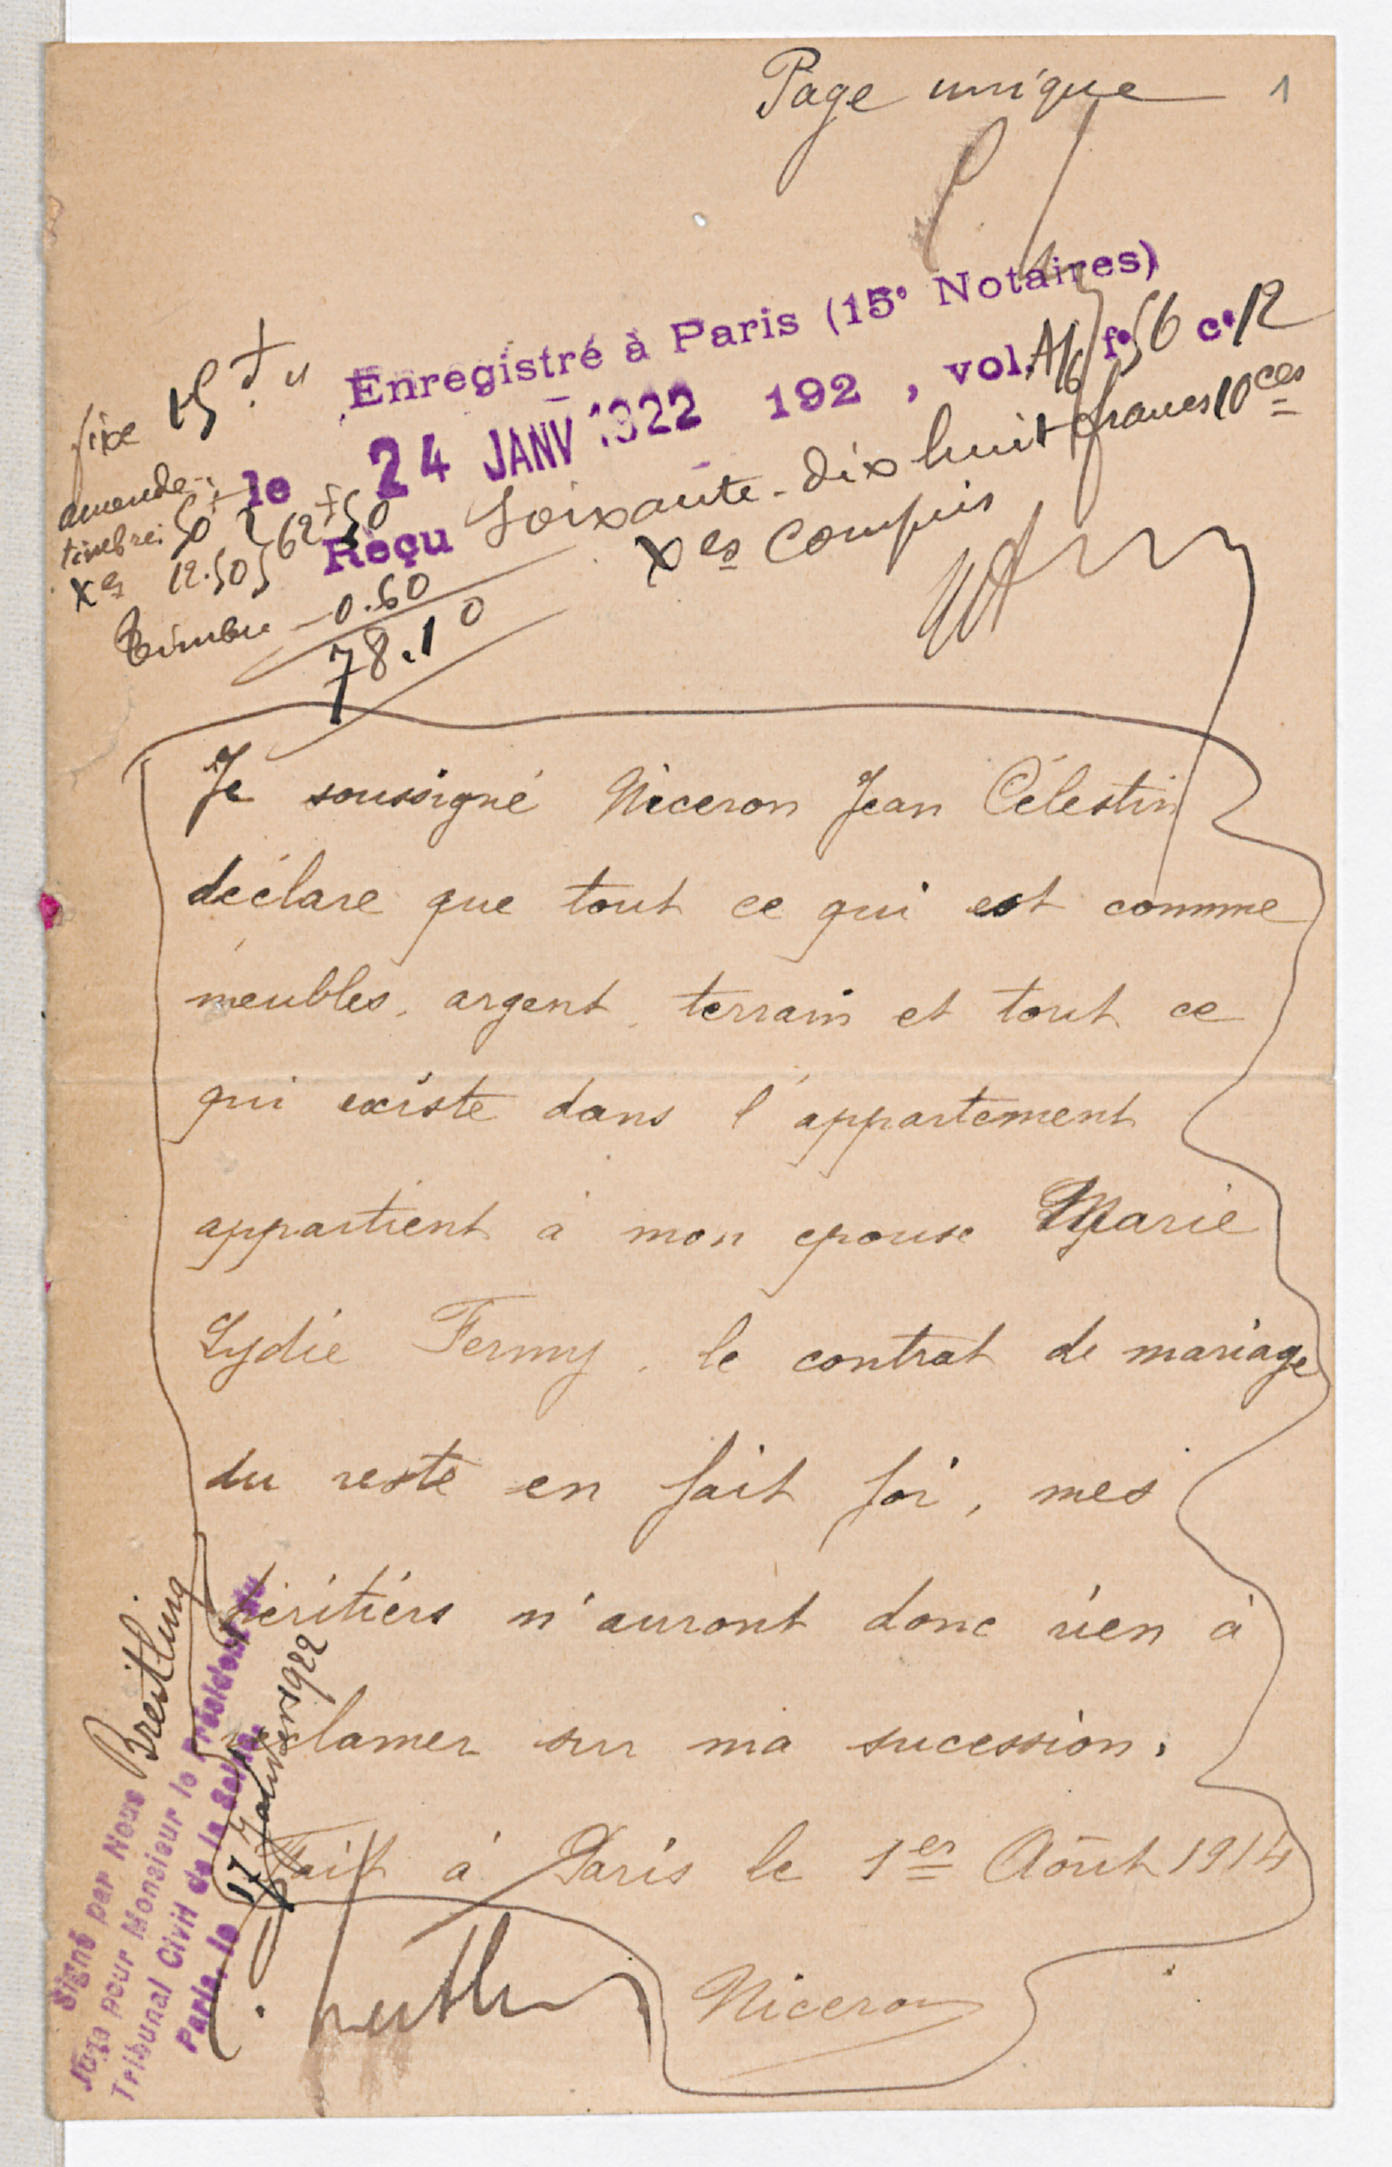 Page unique 1
Enregistré à Paris (15e Notaires)
le 24 JANV 1922 192 , vol. A16 fo 56 ce 12
Reçu Soixante-dix huit francs 10 ces
Xes compris
fixe 15 f "
amende
timbre: 50 f
62 f 50
Xes 12.50
Timbre 0.60
78.10
Je soussigné Niceron Jean Célestin
déclare que tout ce qui est comme
meubles, argent, terrain et tout ce
qui existe dans l'appartement
appartient à mon epouse Marie
Lydie Fermy, le contrat de mariage
du reste en fait foi, mes
héritiérs n'auront donc rien à
reclamer sur ma sucession.
Fait à Paris le 1er Août 1914
Niceron
Signé par Nous Breitling
Juge pour Monsieur le Président du
Tribunal Civil de la Seine.
Paris, le 17 Janvier 1922